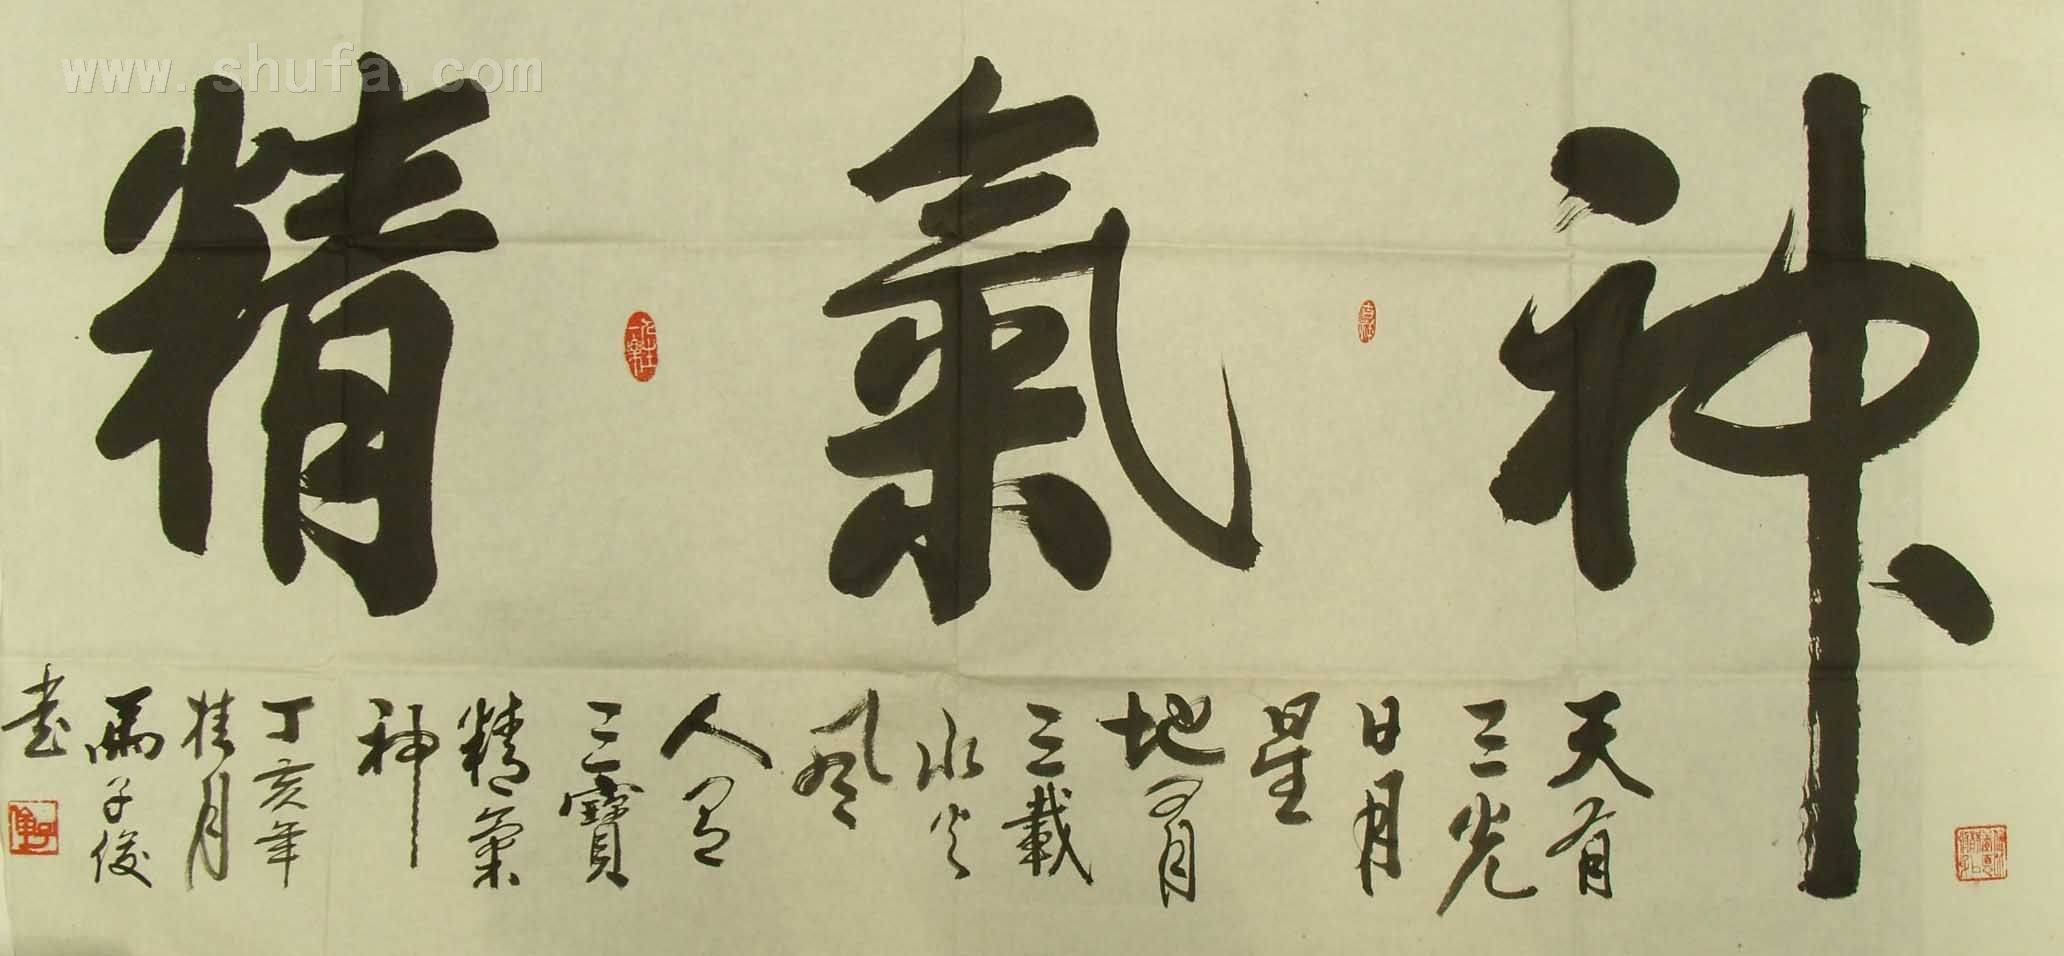 www.shufa.com
精氣神
天有
三光
日月
星
地有
三載
水火
風
人有
三寶
精氣
神
丁亥年
桂月
子俊
書